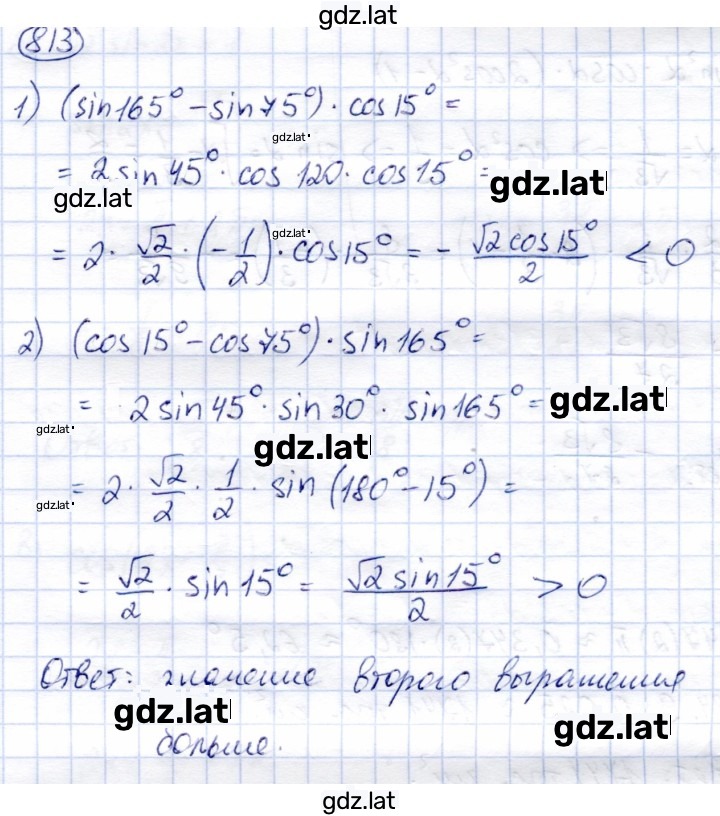 gdz.lat
813
1) (sin165° - sin75°) · cos15° =
gdz.lat
= 2 sin 45° · cos 120 · cos 15° =
gdz.lat
gdz.lat
gdz.lat
= 2 · √2/2 · (-1/2) · cos15° = - √2 cos15°/2 < 0
2) (cos 15° - cos75°) · sin165° =
= 2 sin 45° · sin 30° · sin 165° =
gdz.lat
gdz.lat
gdz.lat
= 2 · √2/2 · 1/2 · sin (180° - 15°) =
gdz.lat
= √2/2 · sin 15° = √2 sin 15°/2 > 0
Ответ: значение второго выражения
gdz.lat
gdz.lat
больше.
gdz.lat